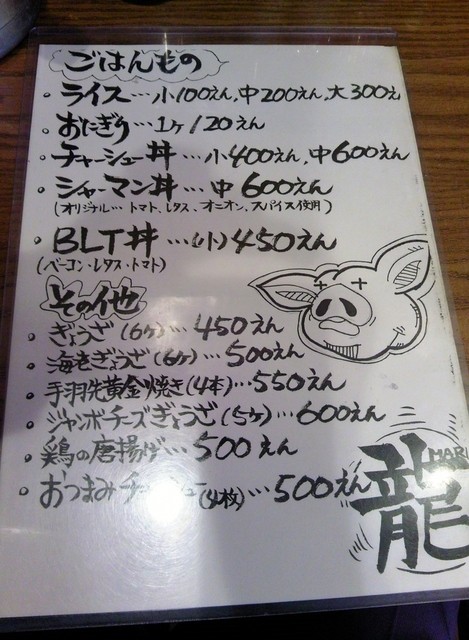 ごはんもの
・ライス…小100えん,中200えん,大300え
・おにぎり…1ヶ120えん
・チャーシュー丼…小400えん,中600えん
・シャーマン丼…中600えん
(オリジナル…トマト、レタス、オニオン、スパイス使用)
・BLT丼…(小)450えん
(ベーコン・レタス・トマト)
その他
・ぎょうざ(6ヶ)…450えん
・海老ぎょうざ(6ヶ)…500えん
・手羽先黄金焼き(4本)…550えん
・ジャンボチーズぎょうざ(5ヶ)…600えん
・鶏の唐揚げ…500えん
・おつまみチャーシュー(4枚)…500えん
龍
MARU